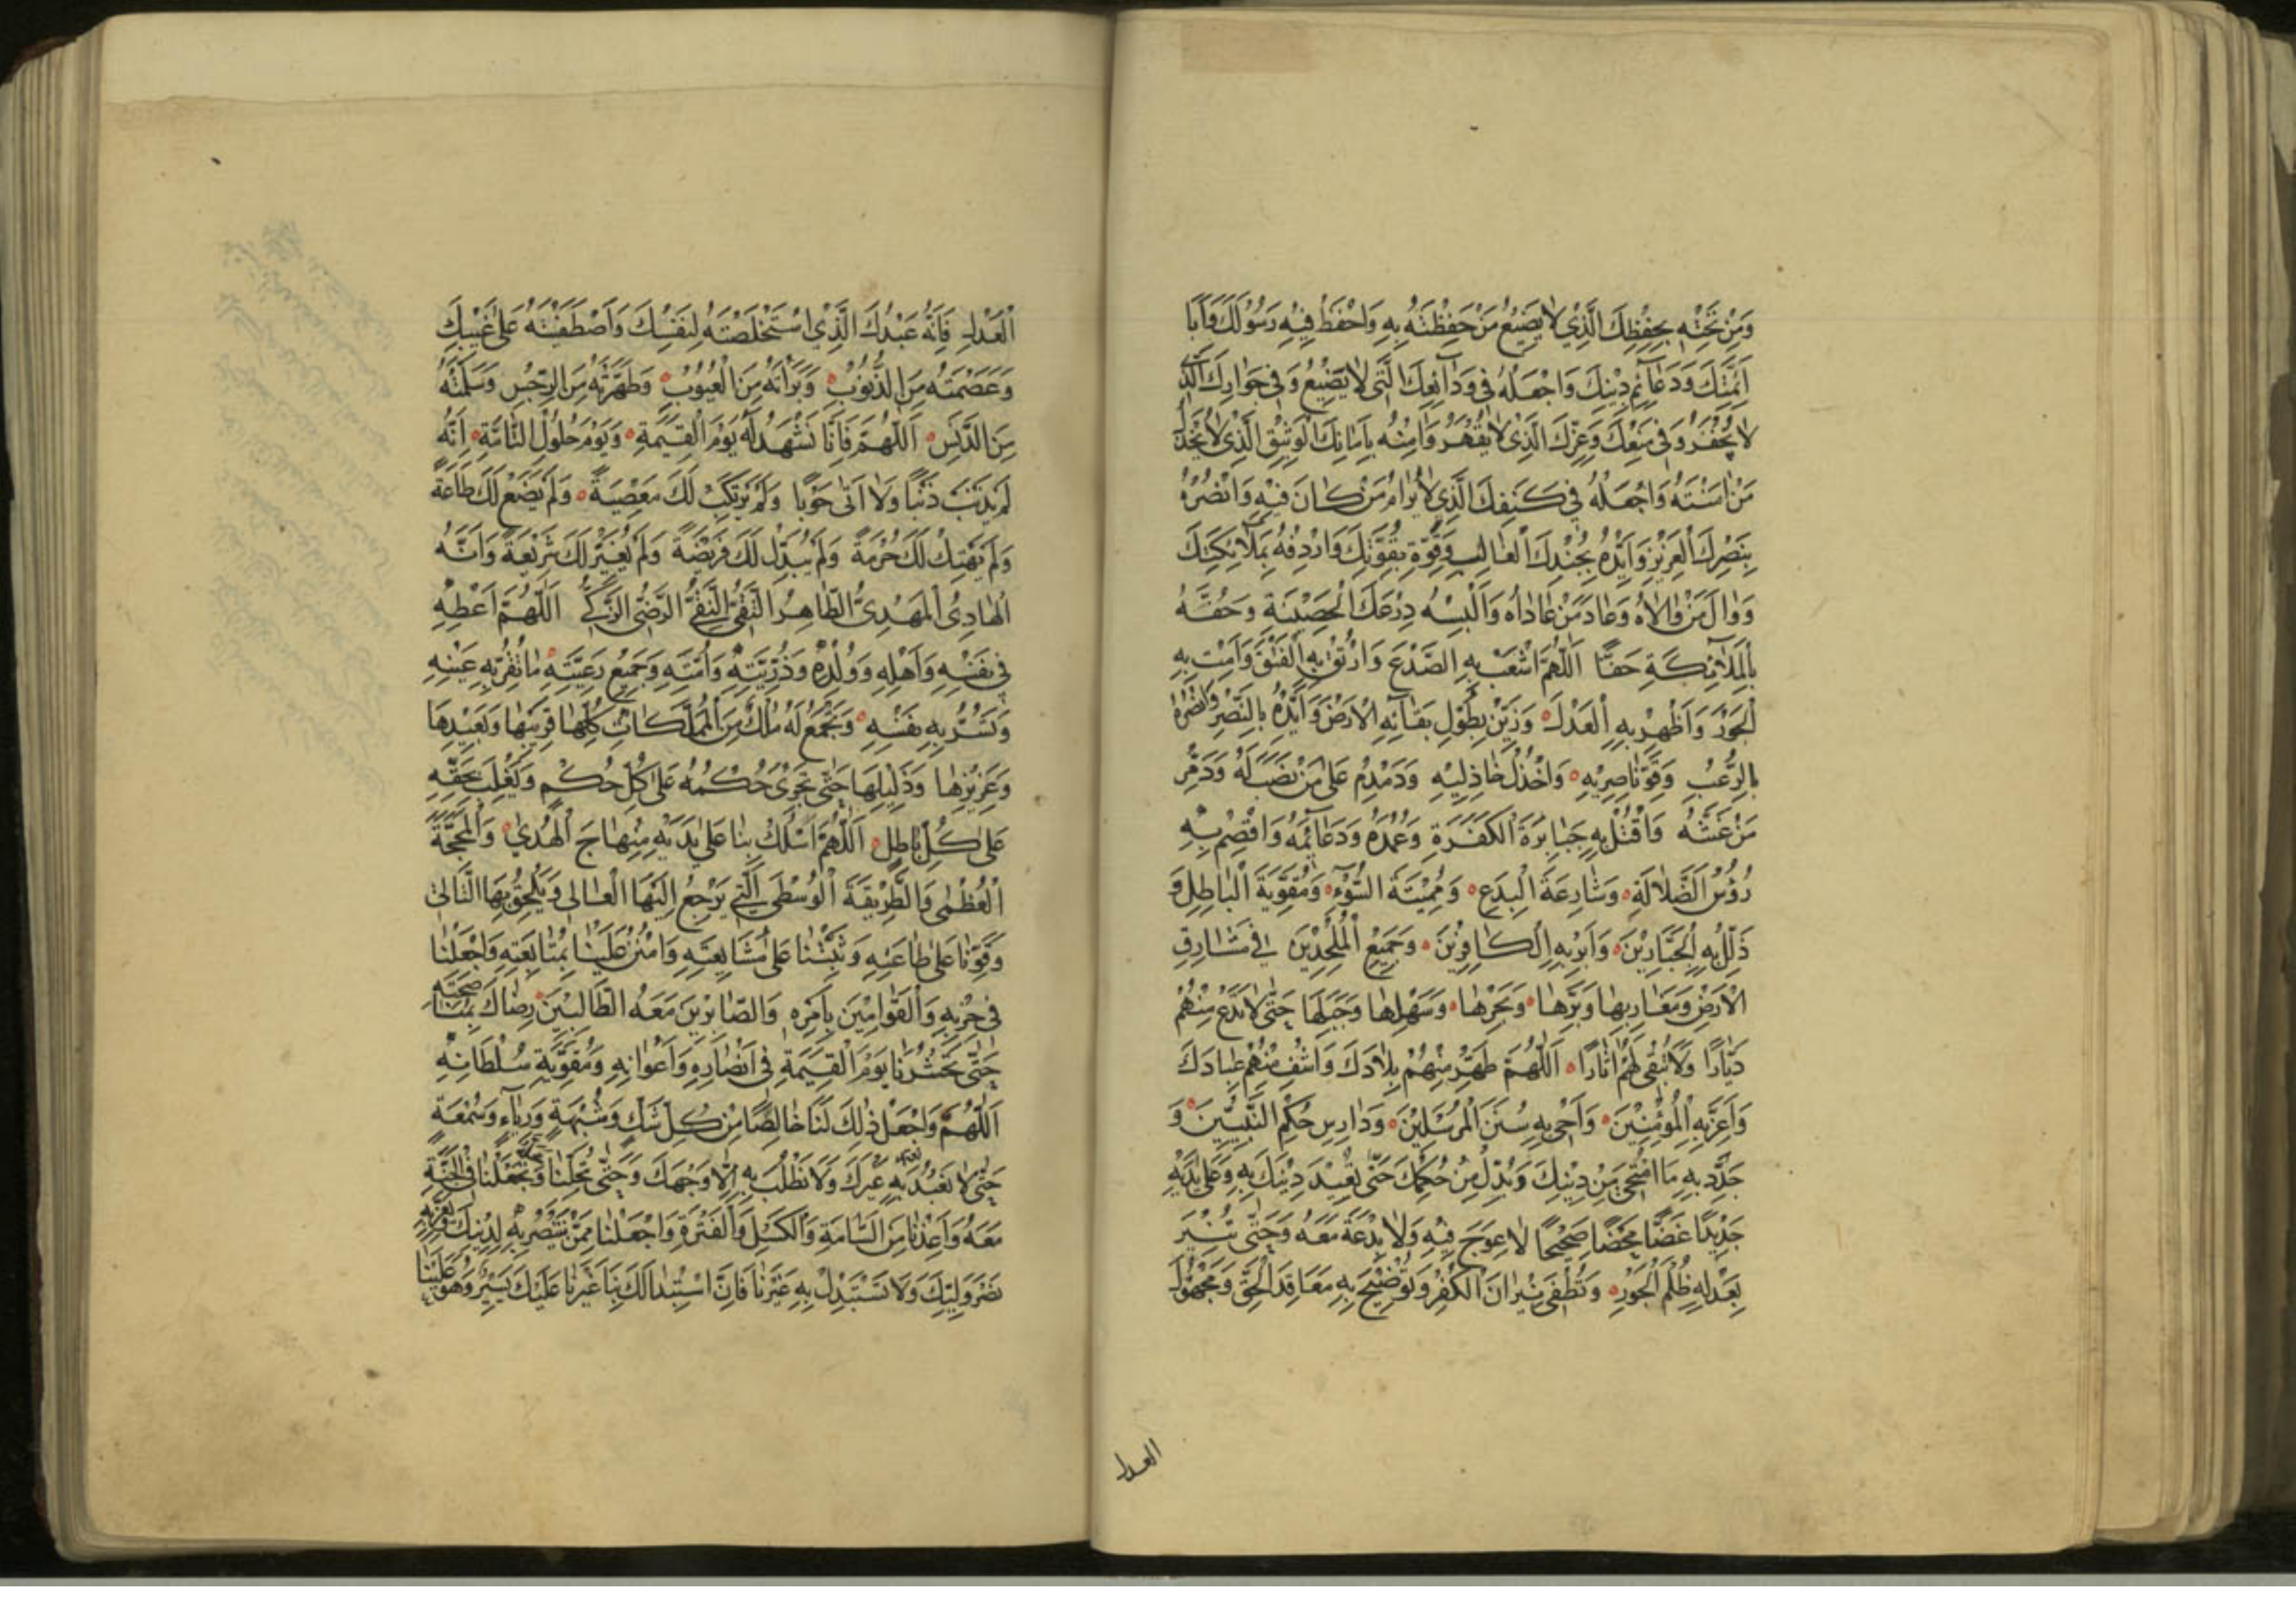 وَمِنْ تَحْتِهِ بِحِفْظِكَ الَّذِي لَا يَضِيعُ مَنْ حَفِظْتَهُ بِهِ وَاحْفَظْ فِيهِ رَسُولَكَ وَآبَا
أَئِمَّتَكَ وَدَعَائِمَ دِينِكَ وَاجْعَلْهُ فِي وَدَائِعِكَ الَّتِي لَا يَضِيعُ وَفِي جِوَارِكَ الَّذِي
لَا يُخْفَرُ وَفِي مَنْعِكَ وَعِزِّكَ الَّذِي لَا يُقْهَرُ وَآمِنْهُ بِأَمَانِكَ الْوَثِيقِ الَّذِي لَا يُخْذَلُ
مَنْ آمَنْتَهُ وَاجْعَلْهُ فِي كَنَفِكَ الَّذِي لَا يُرَامُ مَنْ كَانَ فِيهِ وَانْصُرْهُ
بِنَصْرِكَ الْعَزِيزِ وَأَيِّدْهُ بِجُنْدِكَ الْغَالِبِ وَقَوِّهِ بِقُوَّتِكَ وَارْدِفْهُ بِمَلَائِكَتِكَ
وَوَالِ مَنْ وَالَاهُ وَعَادِ مَنْ عَادَاهُ وَأَلْبِسْهُ دِرْعَكَ الْحَصِينَةَ وَحُفَّهُ
بِالْمَلَائِكَةِ حَفًّا اَللّٰهُمَّ اشْعَبْ بِهِ الصَّدْعَ وَارْتُقْ بِهِ الْفَتْقَ وَأَمِتْ بِهِ
الْجَوْرَ وَأَظْهِرْ بِهِ الْعَدْلَ وَزَيِّنْ بِطُولِ بَقَائِهِ الْأَرْضَ وَأَيِّدْهُ بِالنَّصْرِ وَانْصُرْهُ
بِالرُّعْبِ وَقَوِّ نَاصِرِيهِ وَاخْذُلْ خَاذِلِيهِ وَدَمْدِمْ عَلَى مَنْ نَصَبَ لَهُ وَدَمِّرْ
مَنْ غَشَّهُ وَاقْتُلْ بِهِ جَبَابِرَةَ الْكَفَرَةِ وَعُمُدَهُ وَدَعَائِمَهُ وَاقْصِمْ بِهِ
رُؤُسَ الضَّلَالَةِ وَشَارِعَةَ الْبِدَعِ وَمُمِيتَةَ السُّوْءِ وَمُقَوِّيَةَ الْبَاطِلِ وَ
ذَلِّلْ بِهِ الْجَبَّارِينَ وَأَبِرْ بِهِ الْكَافِرِينَ وَجَمِيعَ الْمُلْحِدِينَ فِي مَشَارِقِ
الْأَرْضِ وَمَغَارِبِهَا وَبَرِّهَا وَبَحْرِهَا وَسَهْلِهَا وَجَبَلِهَا حَتَّى لَا تَدَعَ مِنْهُمْ
دَيَّارًا وَلَا تُبْقِيَ لَهُمْ آثَارًا اَللّٰهُمَّ طَهِّرْ مِنْهُمْ بِلَادَكَ وَاشْفِ مِنْهُمْ عِبَادَكَ
وَأَعِزَّ بِهِ الْمُؤْمِنِينَ وَأَحْيِ بِهِ سُنَنَ الْمُرْسَلِينَ وَدَارِسَ حُكْمِ النَّبِيِّينَ وَ
جَدِّدْ بِهِ مَا امْتَحَى مِنْ دِينِكَ وَبُدِّلَ مِنْ حُكْمِكَ حَتَّى تُعِيدَ دِينَكَ بِهِ وَعَلَى يَدَيْهِ
جَدِيدًا غَضًّا مَحْضًا صَحِيحًا لَا عِوَجَ فِيهِ وَلَا بِدْعَةَ مَعَهُ وَحَتَّى تُنِيرَ
بِعَدْلِهِ ظُلَمَ الْجَوْرِ وَتُطْفِئَ نِيرَانَ الْكُفْرِ وَتُوضِحَ بِهِ مَعَاقِدَ الْحَقِّ وَمَجْهُولَ
العدل
الْعَدْلِ فَإِنَّهُ عَبْدُكَ الَّذِي اسْتَخْلَصْتَهُ لِنَفْسِكَ وَاصْطَفَيْتَهُ عَلَى غَيْبِكَ
وَعَصَمْتَهُ مِنَ الذُّنُوبِ وَبَرَّأْتَهُ مِنَ الْعُيُوبِ وَطَهَّرْتَهُ مِنَ الرِّجْسِ وَسَلَّمْتَهُ
مِنَ الدَّنَسِ اَللّٰهُمَّ فَإِنَّا نَشْهَدُ لَهُ يَوْمَ الْقِيٰمَةِ وَيَوْمَ حُلُولِ الطَّامَّةِ أَنَّهُ
لَمْ يُذْنِبْ ذَنْبًا وَلَا أَتَى حَوْبًا وَلَمْ يَرْتَكِبْ لَكَ مَعْصِيَةً وَلَمْ يُضَيِّعْ لَكَ طَاعَةً
وَلَمْ يَهْتِكْ لَكَ حُرْمَةً وَلَمْ يُبَدِّلْ لَكَ فَرِيضَةً وَلَمْ يُغَيِّرْ لَكَ شَرِيعَةً وَأَنَّهُ
الْهَادِئُ الْمَهْدِيُّ الطَّاهِرُ التَّقِيُّ النَّقِيُّ الرَّضِيُّ الزَّكِيُّ اَللّٰهُمَّ أَعْطِهِ
فِي نَفْسِهِ وَأَهْلِهِ وَوُلْدِهِ وَذُرِّيَّتِهِ وَأُمَّتِهِ وَجَمِيعِ رَعِيَّتِهِ مَا تُقِرُّ بِهِ عَيْنَهُ
وَتَسُرُّ بِهِ نَفْسَهُ وَتَجْمَعُ لَهُ مُلْكَ مِنَ الْمُمَلَّكَاتِ كُلِّهَا قَرِيبِهَا وَبَعِيدِهَا
وَعَزِيزِهَا وَذَلِيلِهَا حَتَّى تَجْرِيَ حُكْمُهُ عَلَى كُلِّ حُكْمٍ وَيَغْلِبَ بِحَقِّهِ
عَلَى كُلِّ بَاطِلٍ اَللّٰهُمَّ اسْلُكْ بِنَا عَلَى يَدَيْهِ مِنْهَاجَ الْهُدَى وَالْمَحَجَّةَ
الْعُظْمَى وَالطَّرِيقَةَ الْوُسْطَى الَّتِي يَرْجِعُ إِلَيْهَا الْغَالِي وَيَلْحَقُ بِهَا التَّالِي
وَقَوِّنَا عَلَى طَاعَتِهِ وَثَبِّتْنَا عَلَى مُشَايَعَتِهِ وَامْنُنْ عَلَيْنَا بِمُتَابَعَتِهِ وَاجْعَلْنَا
فِي حِزْبِهِ وَالْقَوَّامِينَ بِأَمْرِهِ وَالصَّابِرِينَ مَعَهُ الطَّالِبِينَ رِضَاكَ بِمُنَاصَحَتِهِ
حَتَّى تَحْشُرَنَا يَوْمَ الْقِيٰمَةِ فِي أَنْصَارِهِ وَأَعْوَانِهِ وَمُقَوِّيَةِ سُلْطَانِهِ
اَللّٰهُمَّ وَاجْعَلْ ذٰلِكَ لَنَا خَالِصًا مِنْ كُلِّ شَكٍّ وَشُبْهَةٍ وَرِيَاءٍ وَسُمْعَةٍ
حَتَّى لَا نَعْبُدَ بِهِ غَيْرَكَ وَلَا نَطْلُبَ بِهِ إِلَّا وَجْهَكَ وَحَتَّى تُحِلَّنَا وَتَجْعَلَنَا فِي الْجَنَّةِ
مَعَهُ وَأَعِذْنَا مِنَ السَّامَةِ وَالْكَسَلِ وَالْفَتْرَةِ وَاجْعَلْنَا مِمَّنْ تَنْتَصِرُ بِهِ لِدِينِكَ وَتُعِزُّ بِهِ
نَصْرَ وَلِيِّكَ وَلَا تَسْتَبْدِلْ بِهِ غَيْرَنَا فَإِنَّ اسْتِبْدَالَكَ بِنَا غَيْرَنَا عَلَيْكَ يَسِيرٌ وَهُوَ عَلَيْنَا